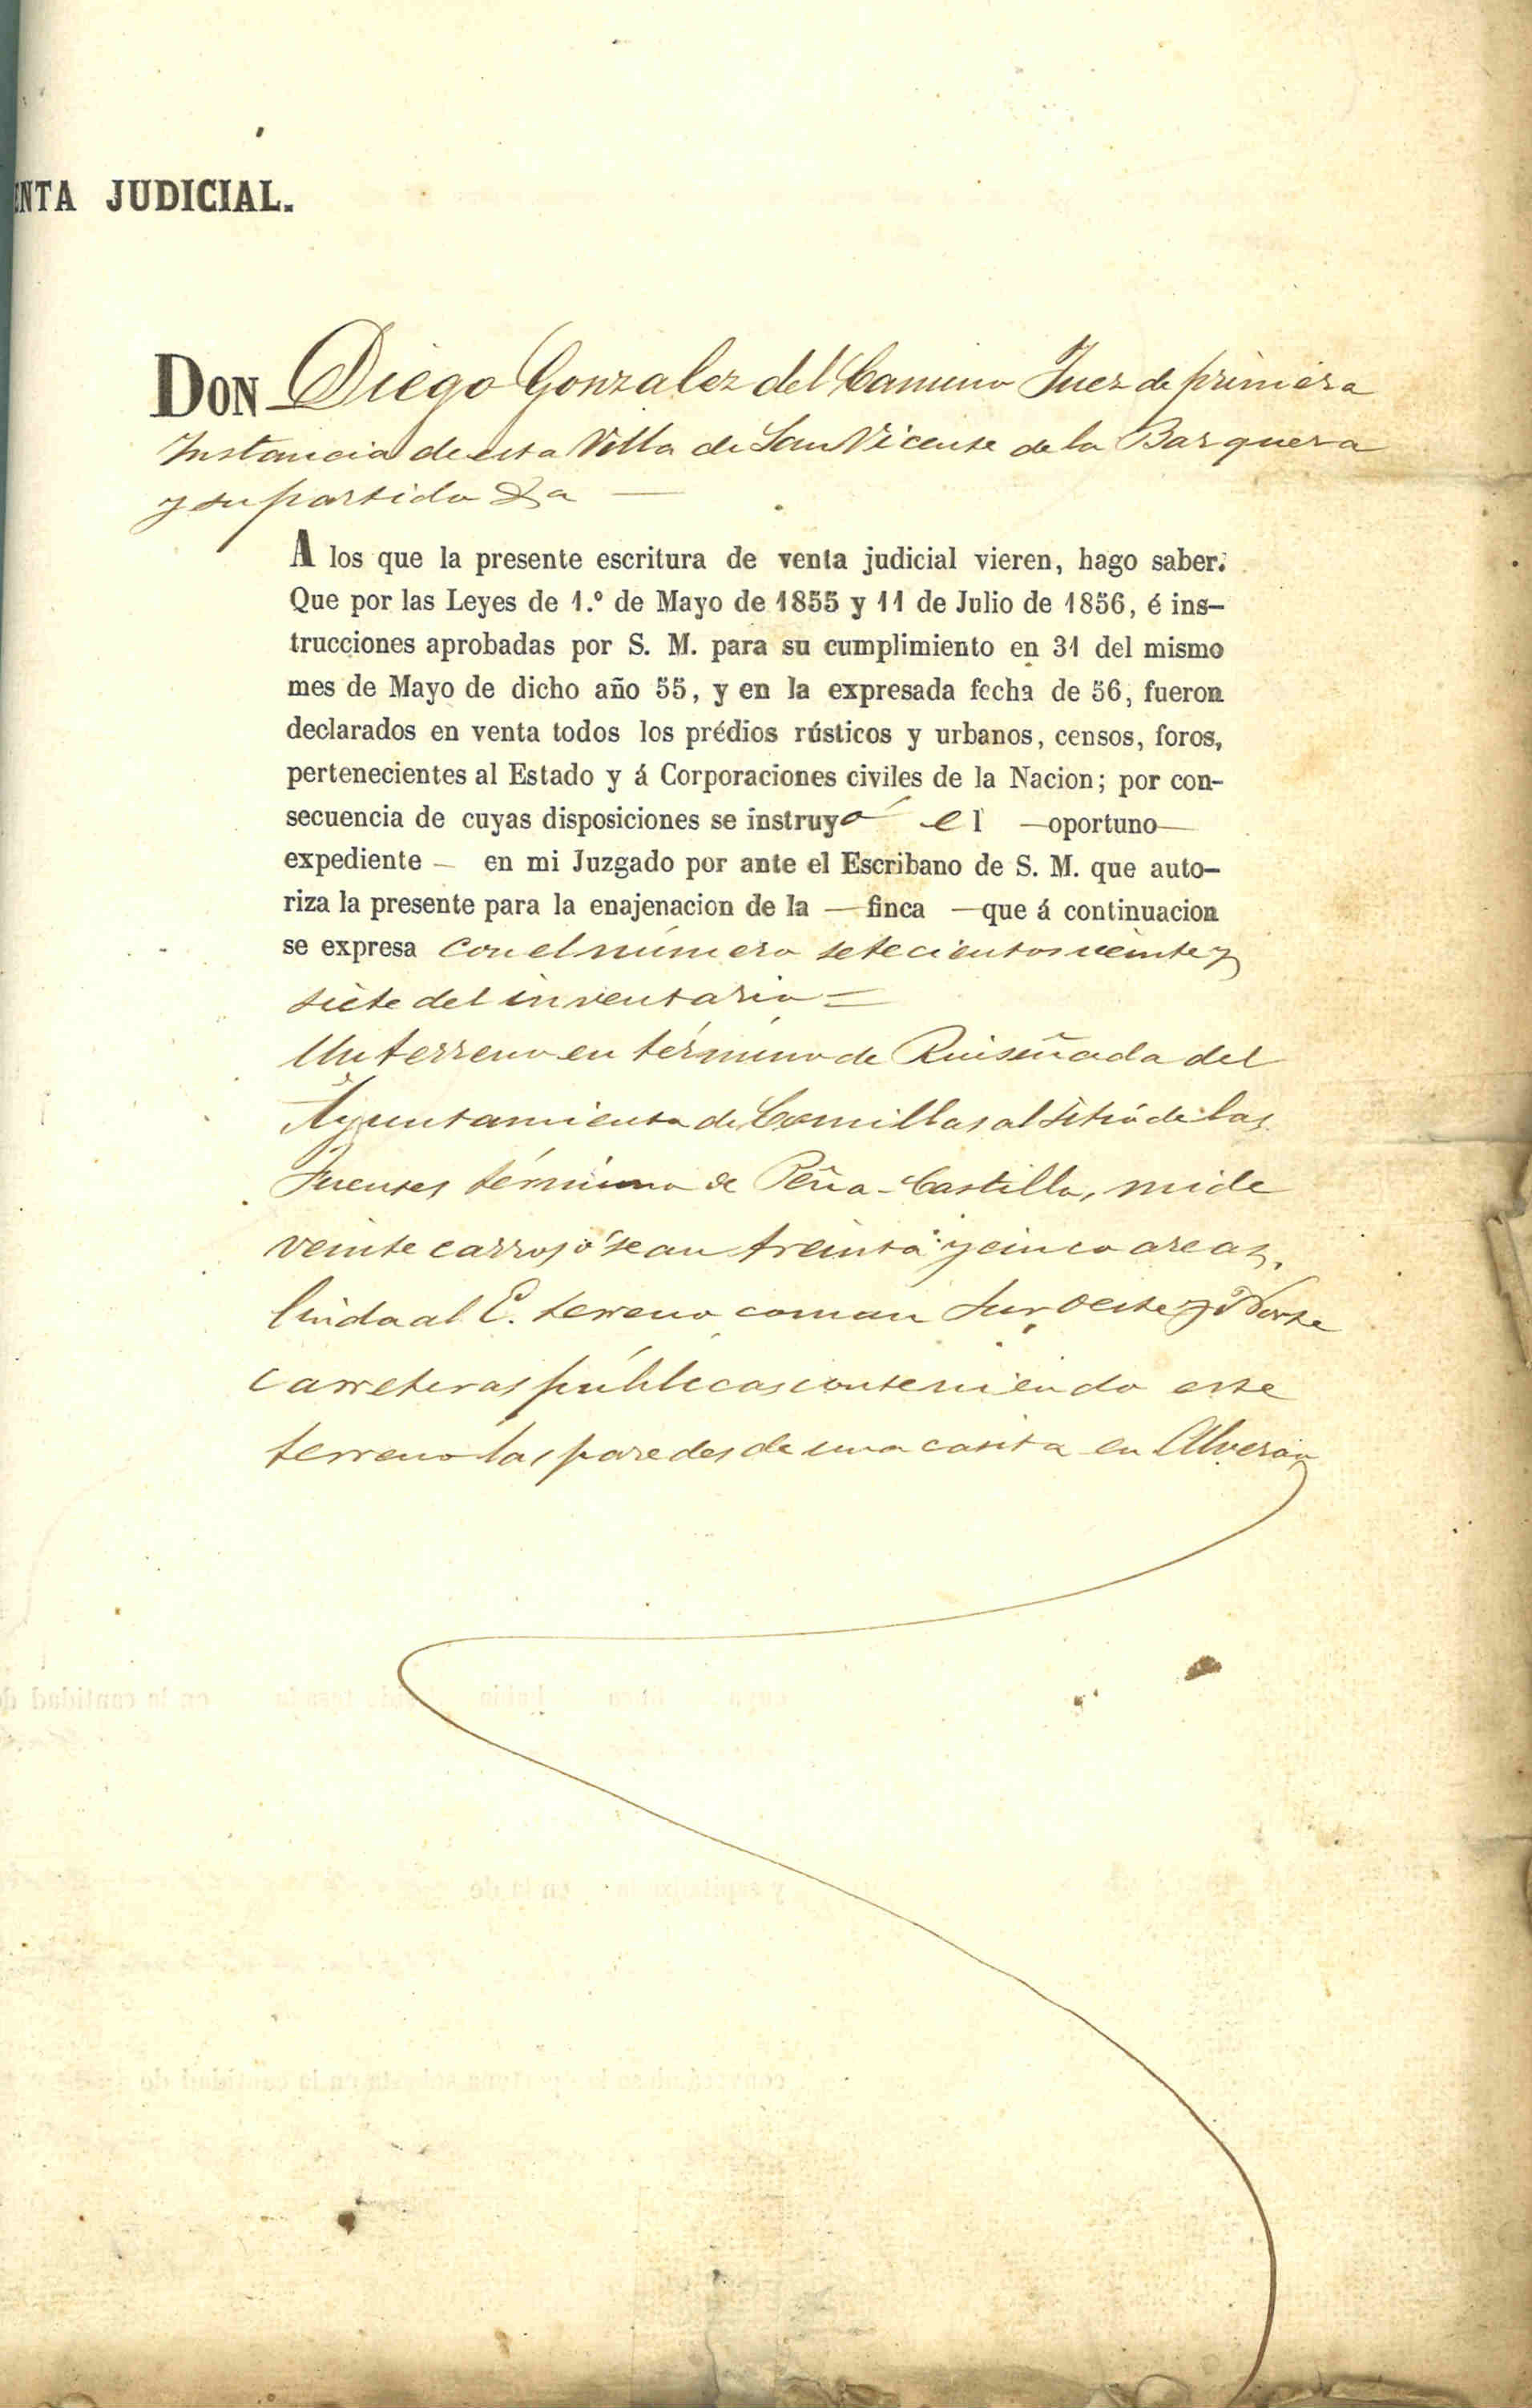 ENTA JUDICIAL.
DON Diego Gonzalez del Camino Juez de primera
Instancia de esta Villa de San Vicente de la Barquera
y su partido &a
A los que la presente escritura de venta judicial vieren, hago saber:
Que por las Leyes de 1.º de Mayo de 1855 y 11 de Julio de 1856, é ins-
trucciones aprobadas por S. M. para su cumplimiento en 31 del mismo
mes de Mayo de dicho año 55, y en la expresada fecha de 56, fueron
declarados en venta todos los prédios rústicos y urbanos, censos, foros,
pertenecientes al Estado y á Corporaciones civiles de la Nacion; por con-
secuencia de cuyas disposiciones se instruyó el —oportuno—
expediente — en mi Juzgado por ante el Escribano de S. M. que auto-
riza la presente para la enajenacion de la — finca — que á continuacion
se expresa con el número setecientos veinte y
siete del inventario =
Un terreno en término de Ruiseñada del
Ayuntamiento de Comillas al sitio de las
Fuentes término de Peña-Castillo, mide
veinte carros ó sean treinta y cinco areas.
linda al E. terreno comun Sur Oeste y Norte
carreteras públicas conteniendo este
terreno las paredes de una casita en Alveran